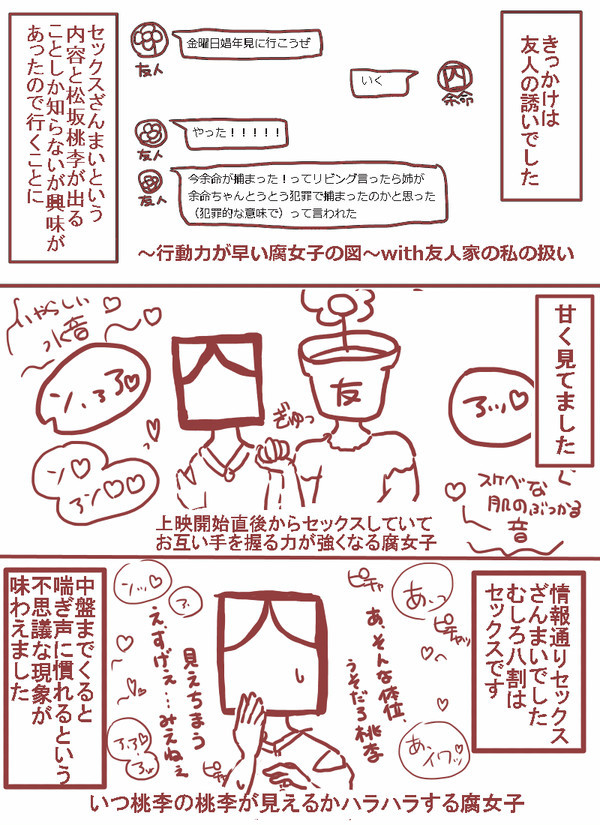 きっかけは
友人の誘いでした
金曜日娼年見に行こうぜ
友人
いく
囚
余命
やった！！！！！
友人
今余命が捕まった！ってリビング言ったら姉が
余命ちゃんとうとう犯罪で捕まったのかと思った
（犯罪的な意味で）って言われた
友人
セックスざんまいという
内容と松坂桃李が出る
ことしか知らないが興味が
あったので行くことに
～行動力が早い腐女子の図～with友人家の私の扱い
甘く見てました
いやらしい
水音
友
ぎゅっ
ン、
ン♡
アン♡♡
スケベな
肌のぶつかる
音
上映開始直後からセックスしていて
お互い手を握る力が強くなる腐女子
情報通りセックス
ざんまいでした
むしろ八割は
セックスです
あっ
ピチャ
ピチャッ
あ、そんな体位、
うそだろ桃李
あ、イクッ
ンッ♡
見えちまう
え、すげえ…みえねぇ
ピチャ
中盤までくると
喘ぎ声に慣れるという
不思議な現象が
味わえました
いつ桃李の桃李が見えるかハラハラする腐女子